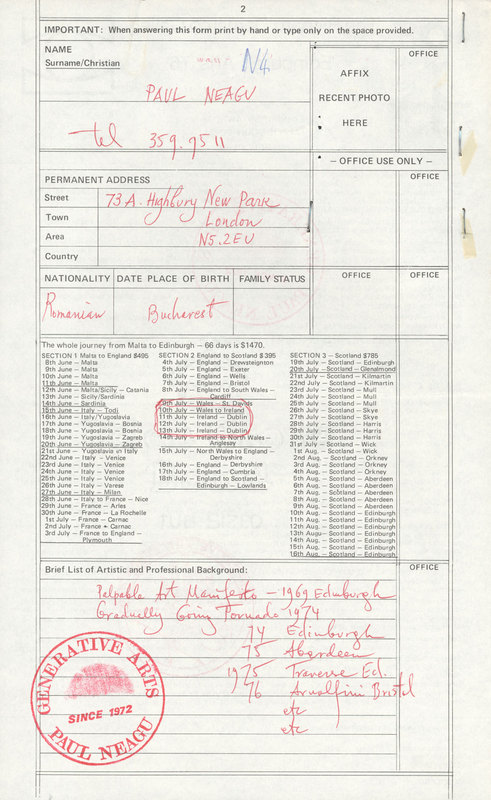 2
IMPORTANT: When answering this form print by hand or type only on the space provided.
NAME
Surname/Christian
N4
OFFICE
PAUL NEAGU
tel 359.7511
AFFIX
RECENT PHOTO
HERE
— OFFICE USE ONLY —
PERMANENT ADDRESS
OFFICE
Street 73 A. Highbury New Park
Town London
Area N5.2EU
Country
NATIONALITY DATE PLACE OF BIRTH FAMILY STATUS OFFICE OFFICE
Romanian Bucharest
The whole journey from Malta to Edinburgh — 66 days is $1470.
SECTION 1 Malta to England $495
8th June — Malta
9th June — Malta
10th June — Malta
11th June — Malta
12th June — Malta/Sicily — Catania
13th June — Sicily/Sardinia
14th June — Sardinia
15th June — Italy — Todi
16th June — Italy/Yugoslavia
17th June — Yugoslavia — Bosnia
18th June — Yugoslavia — Bosna
19th June — Yugoslavia — Zagreb
20th June — Yugoslavia — Zagreb
21st June — Yugoslavia to Italy
22nd June — Italy — Venice
23rd June — Italy — Venice
24th June — Italy — Venice
25th June — Italy — Venice
26th June — Italy — Varese
27th June — Italy — Milan
28th June — Italy to France — Nice
29th June — France — Arles
30th June — France — La Rochelle
1st July — France — Carnac
2nd July — France — Carnac
3rd July — France to England —
Plymouth
SECTION 2 England to Scotland $395
4th July — England — Drewsteignton
5th July — England — Exeter
6th July — England — Wells
7th July — England — Bristol
8th July — England to South Wales —
Cardiff
9th July — Wales — St. Davids
10th July — Wales to Ireland
11th July — Ireland — Dublin
12th July — Ireland — Dublin
13th July — Ireland — Dublin
14th July — Ireland to North Wales —
Anglesay
15th July — North Wales to England —
Derbyshire
16th July — England — Derbyshire
17th July — England — Cumbria
18th July — England to Scotland —
Edinburgh — Lowlands
SECTION 3 — Scotland $785
19th July — Scotland — Edinburgh
20th July — Scotland — Glenalmond
21st July — Scotland — Kilmartin
22nd July — Scotland — Kilmartin
23rd July — Scotland — Mull
24th July — Scotland — Mull
25th July — Scotland — Mull
26th July — Scotland — Skye
27th July — Scotland — Skye
28th July — Scotland — Harris
29th July — Scotland — Harris
30th July — Scotland — Harris
31st July — Scotland — Wick
1st Aug. — Scotland — Wick
2nd Aug. — Scotland — Orkney
3rd Aug. — Scotland — Orkney
4th Aug. — Scotland — Orkney
5th Aug. — Scotland — Aberdeen
6th Aug. — Scotland — Aberdeen
7th Aug. — Scotland — Aberdeen
8th Aug. — Scotland — Aberdeen
9th Aug. — Scotland — Edinburgh
10th Aug. — Scotland — Edinburgh
11th Aug. — Scotland — Edinburgh
12th Aug. — Scotland — Edinburgh
13th Aug. — Scotland — Edinburgh
14th Aug. — Scotland — Edinburgh
15th Aug. — Scotland — Edinburgh
16th Aug. — Scotland — Edinburgh
Brief List of Artistic and Professional Background:
OFFICE
Palpable Art Manifesto — 1969 Edinburgh
Gradually Going Tornado 1974
74 Edinburgh
75 Aberdeen
1975 Traverse Ed.
76 Arnolfini Bristol
etc
etc
GENERATIVE ARTS
SINCE 1972
PAUL NEAGU